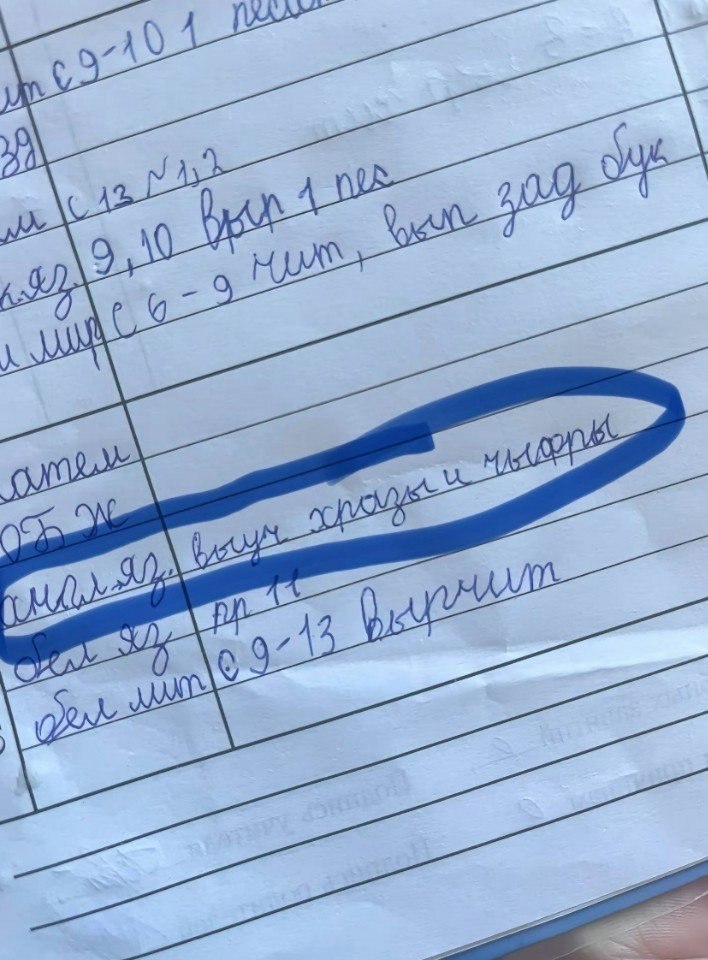 ит с 9-10 1 песн
зд
м с 13 №1,2
к.яз. 9,10 Вып 1 пес
и мир с 6-9 чит, вып зад бук
атем
ОБЖ
англ.яз. выуч хразы и чыфры
бел яз пр 11
бел лит с 9-13 Выр чит